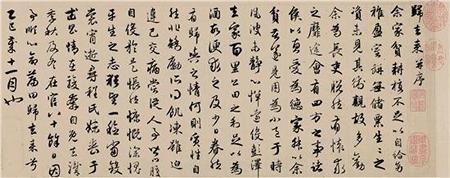 歸去來并序
余家貧耕植不足以自給幼
稚盈室缾無儲粟生生之
資未見其術親故多勸
余為長吏脫然有懷求
之靡途會有四方之事諸
侯以惠愛為德家叔以余
貧苦遂見用為小邑于時
風波未靜心憚遠役彭澤
去家百里公田之利足以為
酒故便求之及少日眷然
有歸與之情何則質性自
然非矯勵所得飢凍雖切
違己交病嘗從人事皆口腹
自役於是悵然慷慨深愧
平生之志猶望一稔當斂
裳宵逝尋程氏妹喪于
武昌情在駿奔自免去職
仲秋至冬在官八十餘日因
事順心命篇曰歸去來兮
乙巳歲十一月也